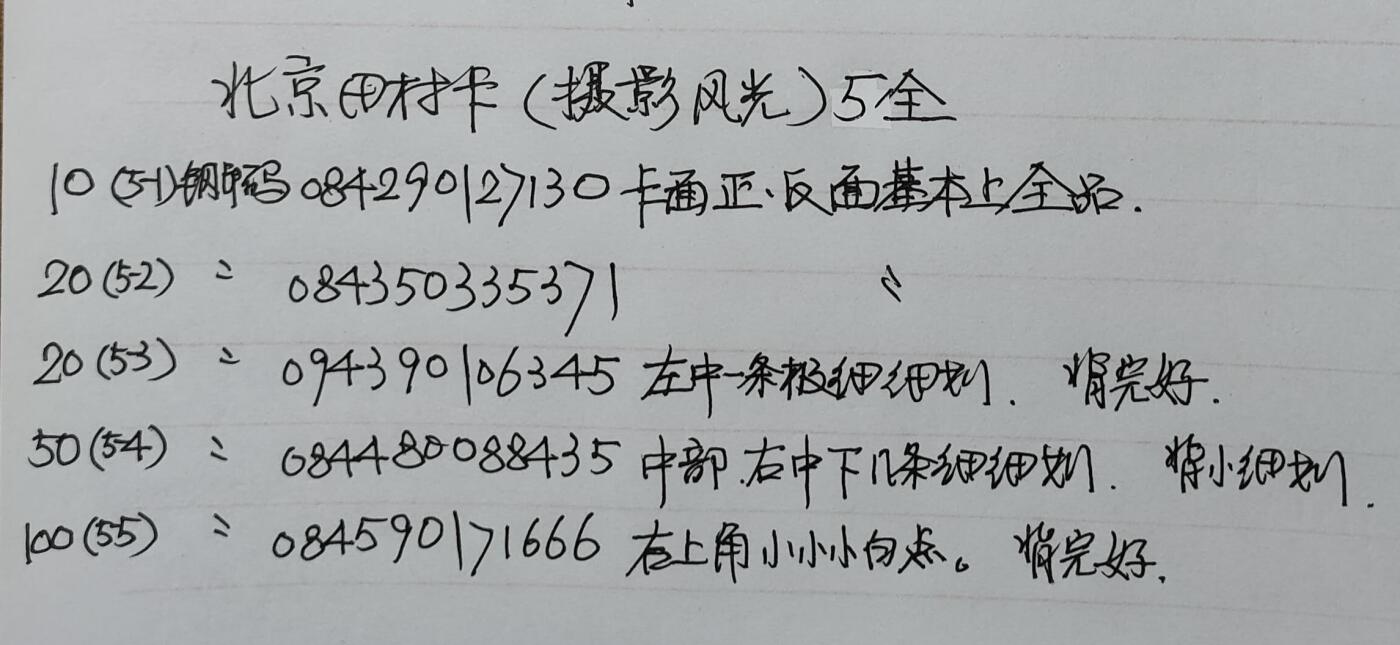 北京田村卡(摄影风光)5全
10(5-1)钢印码084290127130卡面正.反面基本上全品.
20(5-2) 〃 084350335371 〃
20(5-3) 〃 094390106345 左中一条极细细划. 背完好.
50(5-4) 〃 084480088435 中部.右中下几条细细划. 背小细划.
100(5-5) 〃 084590171666 右上角小小小白点。背完好.